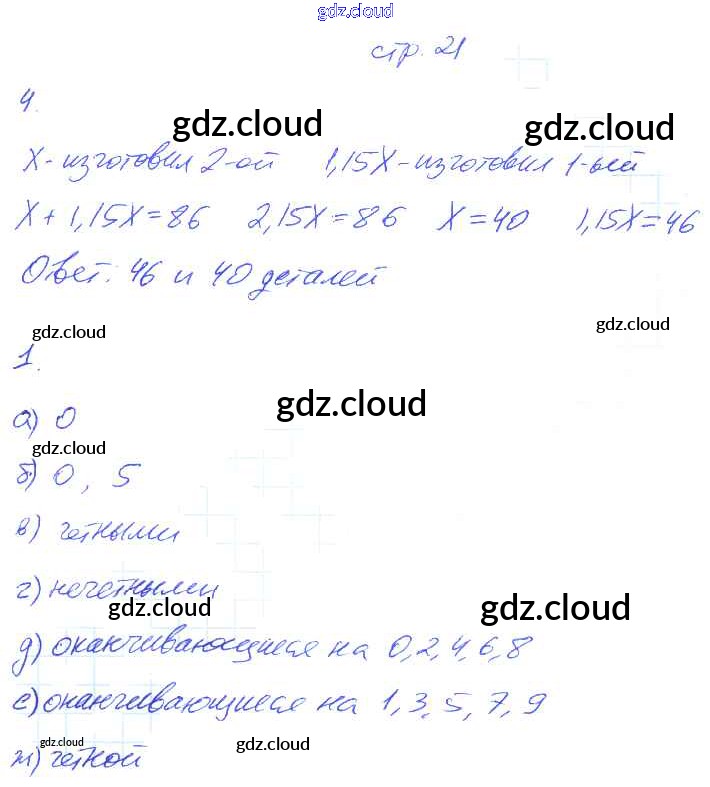 gdz.cloud
стр. 21
4.
gdz.cloud gdz.cloud
X - изготовил 2-ой 1,15X - изготовил 1-ый
X + 1,15X = 86 2,15X = 86 X = 40 1,15X = 46
Ответ: 46 и 40 деталей
gdz.cloud gdz.cloud
1.
gdz.cloud
а) 0
gdz.cloud
б) 0, 5
в) четными
г) нечетными
gdz.cloud gdz.cloud
д) оканчивающиеся на 0, 2, 4, 6, 8
е) оканчивающиеся на 1, 3, 5, 7, 9
gdz.cloud gdz.cloud
ж) четной